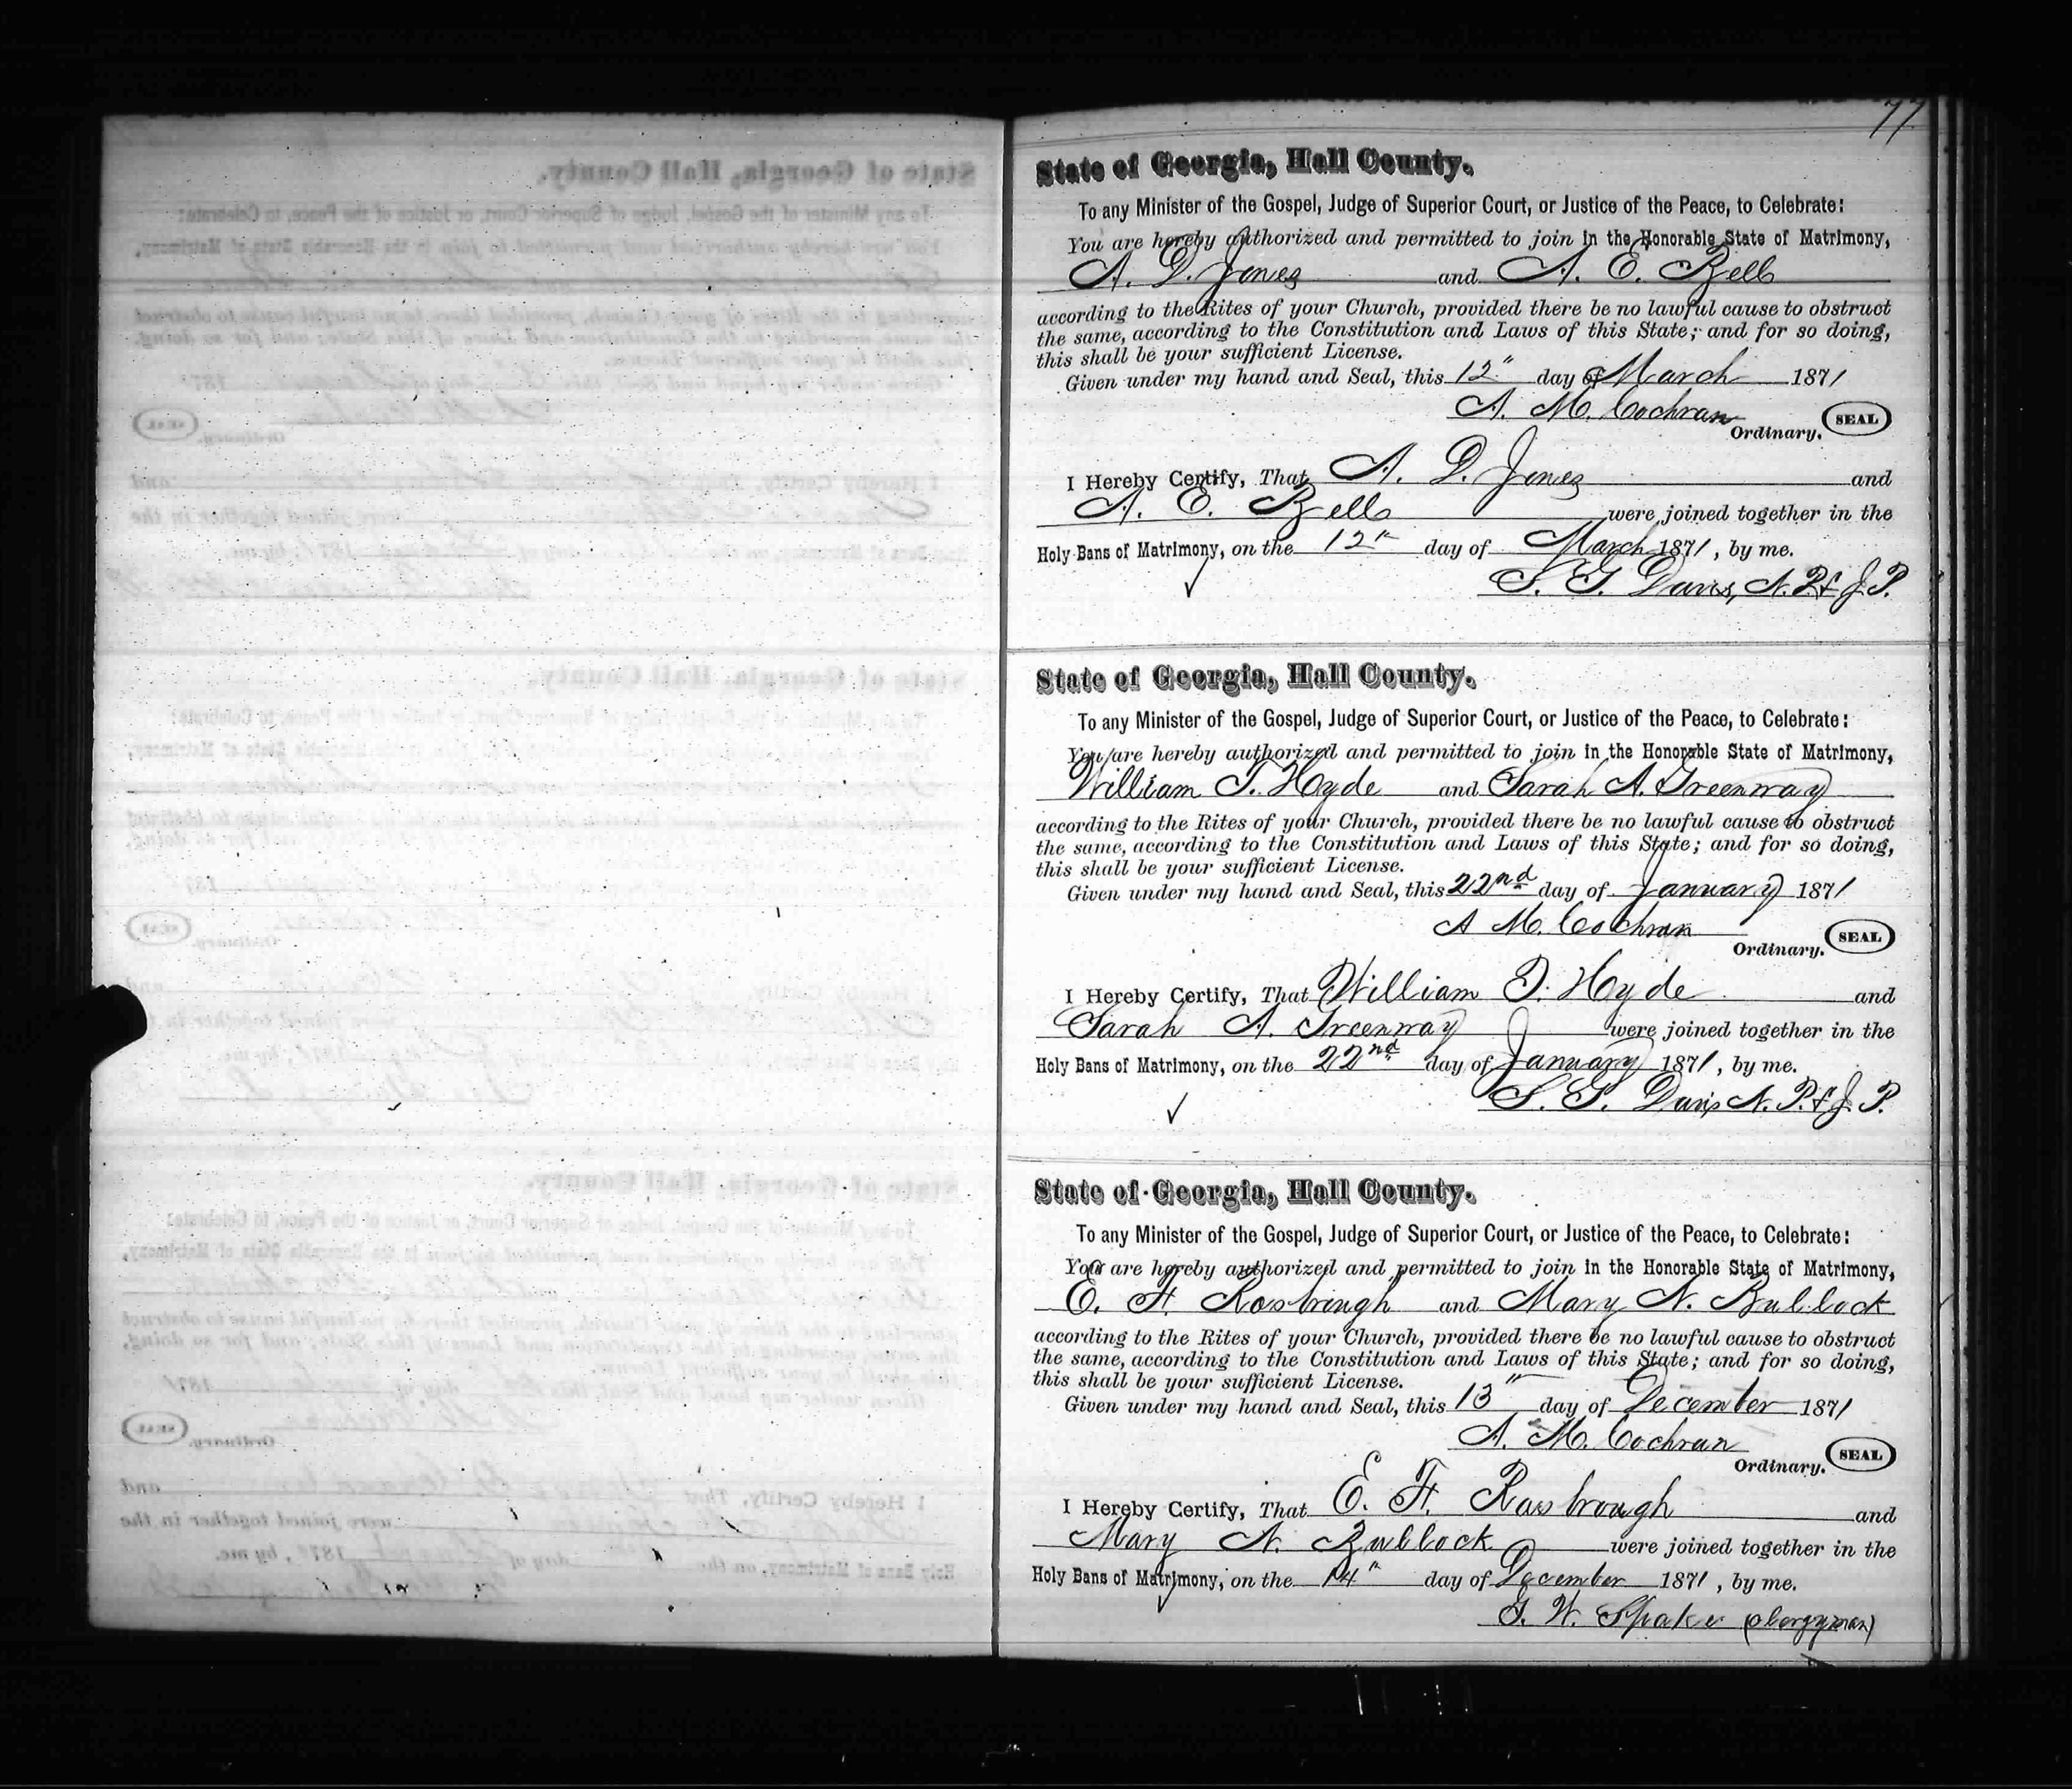 77
State of Georgia, Hall County.
To any Minister of the Gospel, Judge of Superior Court, or Justice of the Peace, to Celebrate:
You are hereby authorized and permitted to join in the Honorable State of Matrimony,
A. D. Jones and A. E. Bell
according to the Rites of your Church, provided there be no lawful cause to obstruct
the same, according to the Constitution and Laws of this State; and for so doing,
this shall be your sufficient License.
Given under my hand and Seal, this 12" day of March 1871
A. M. Cochran
Ordinary. SEAL
I Hereby Certify, That A. D. Jones and
A. E. Bell were joined together in the
Holy Bans of Matrimony, on the 12" day of March 1871, by me.
S. G. Davis, N. P. & J. P.
State of Georgia, Hall County.
To any Minister of the Gospel, Judge of Superior Court, or Justice of the Peace, to Celebrate:
You are hereby authorized and permitted to join in the Honorable State of Matrimony,
William T. Hyde and Sarah A. Greenway
according to the Rites of your Church, provided there be no lawful cause to obstruct
the same, according to the Constitution and Laws of this State; and for so doing,
this shall be your sufficient License.
Given under my hand and Seal, this 22nd day of January 1871
A M. Cochran
Ordinary. SEAL
I Hereby Certify, That William T. Hyde and
Sarah A. Greenway were joined together in the
Holy Bans of Matrimony, on the 22nd day of January 1871, by me.
S. G. Davis N. P. & J. P.
State of Georgia, Hall County.
To any Minister of the Gospel, Judge of Superior Court, or Justice of the Peace, to Celebrate:
You are hereby authorized and permitted to join in the Honorable State of Matrimony,
E. F. Rosbrough and Mary N. Bullock
according to the Rites of your Church, provided there be no lawful cause to obstruct
the same, according to the Constitution and Laws of this State; and for so doing,
this shall be your sufficient License.
Given under my hand and Seal, this 13" day of December 1871
A. M. Cochran
Ordinary. SEAL
I Hereby Certify, That E. F. Rasbrough and
Mary N. Bullock were joined together in the
Holy Bans of Matrimony, on the 14" day of December 1871, by me.
G. W. (clergyman)